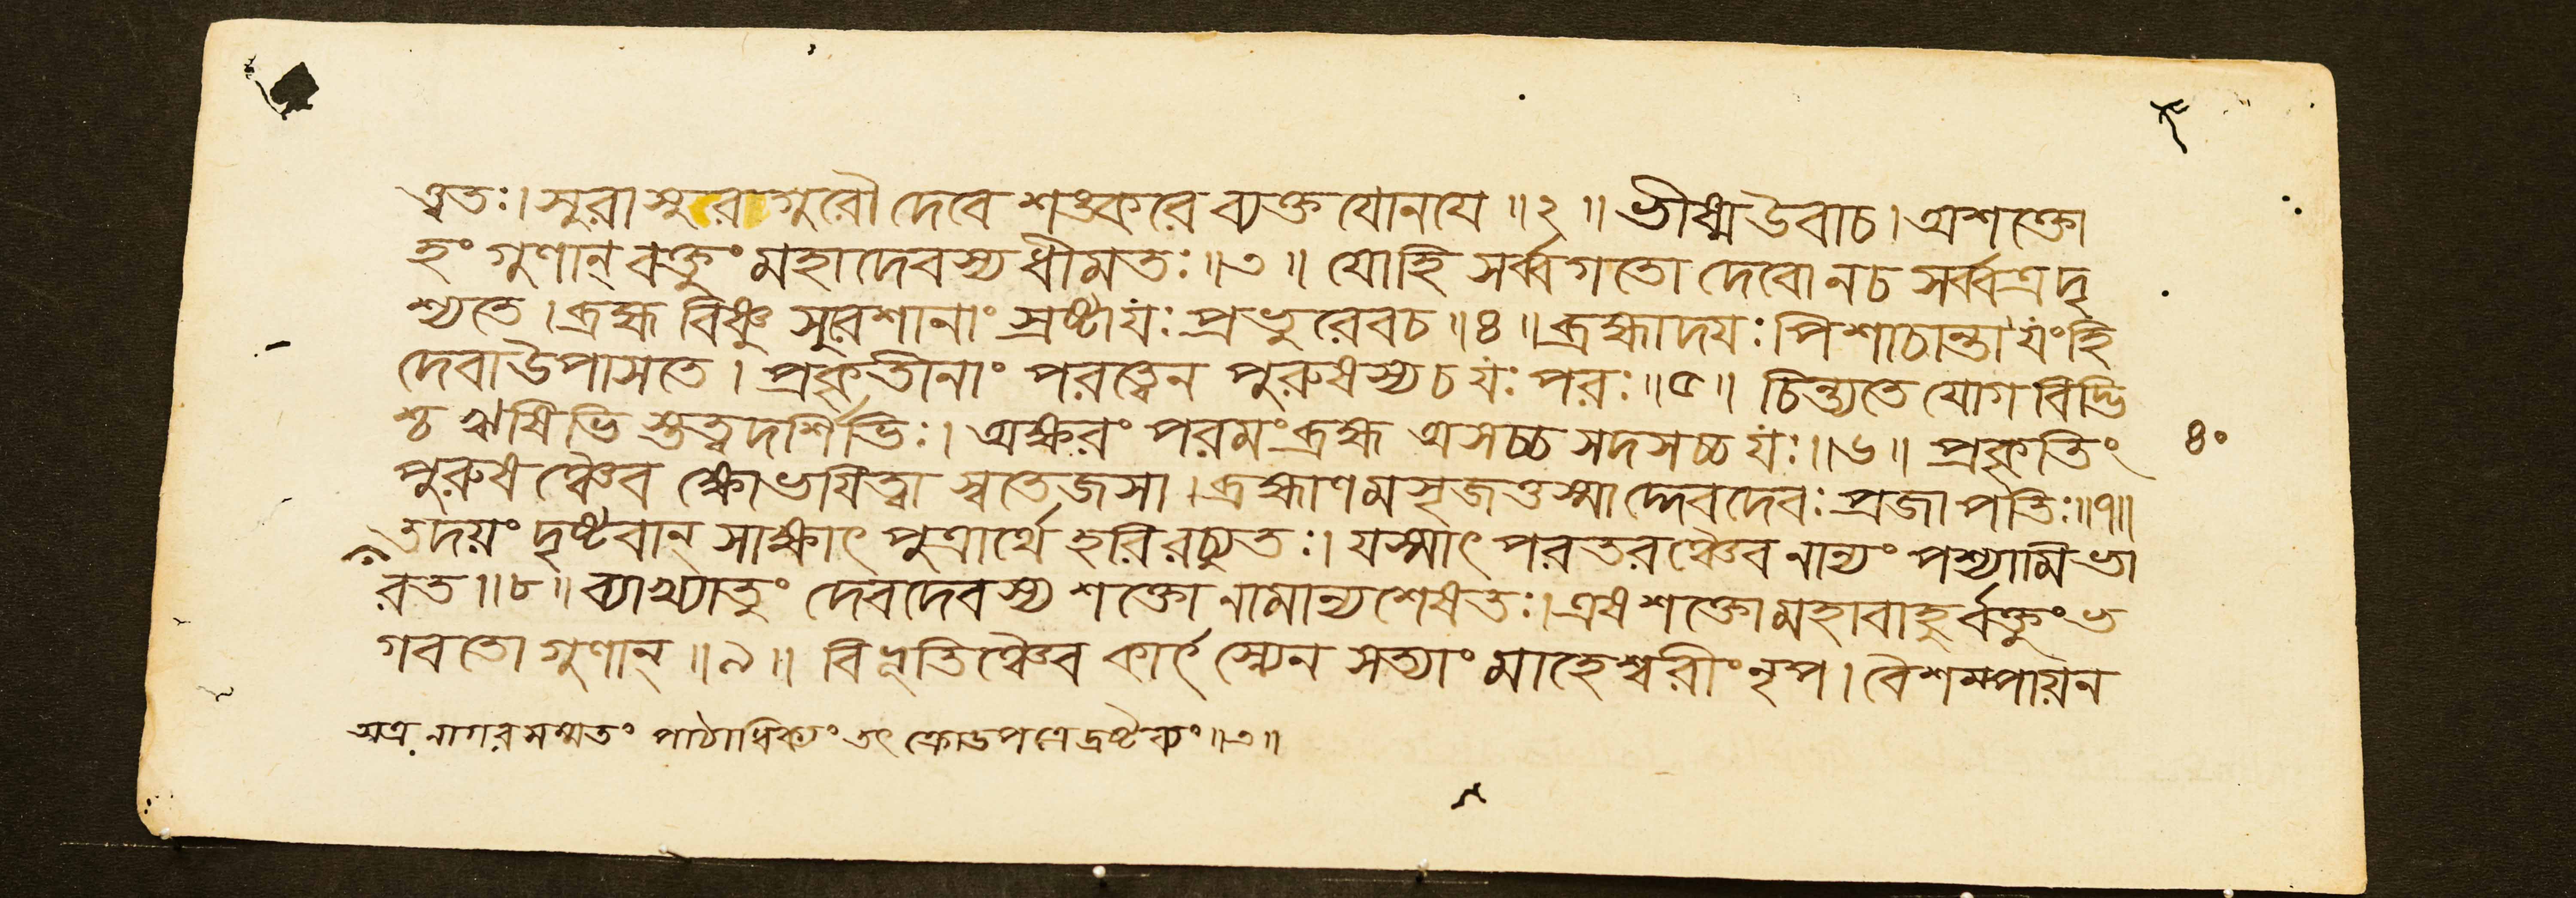 ত্ত্বতঃ। সুরাসুরাগুরৌ দেবে শঙ্করে ব্যক্তযোনযে॥২॥ ভীষ্ম উবাচ। অশক্তো
হং গুণান্ বক্তুং মহাদেবস্য ধীমতঃ॥৩॥ যোহি সর্ব্বগতো দেবো নচ সর্ব্বত্র দৃ
শ্যতে। ব্রহ্ম বিষ্ণু সুরেশানাং স্রষ্টাযঃ প্রভুরেবচ॥৪॥ ব্রহ্মাদযঃ পিশাচান্তা যংহি
দেবা উপাসতে। প্রকৃতীনাং পরত্বেন পুরুষস্য চ যঃ পরঃ॥৫॥ চিন্ত্যতে যোগবিদ্ভি
শ্চ ঋষিভি স্তত্ত্বদর্শিভিঃ। অক্ষরং পরমং ব্রহ্ম অসচ্চ সদসচ্চ যঃ॥৬॥ প্রকৃতিং
পুরুষঞ্চৈব ক্ষোভযিত্বা স্বতেজসা। ব্রহ্মাণমসৃজত্তস্মাদ্দেবদেবঃ প্রজাপতিঃ॥৭॥
তদয়ং দৃষ্টবান্ সাক্ষাৎ পুত্রার্থে হরিরচ্যুতঃ। যস্মাৎ পরতরঞ্চৈব নান্যং পশ্যামি ভা
রত॥৮॥ ব্যাখ্যাতুং দেবদেবস্য শক্তো নামান্যশেষতঃ। এষ শক্তো মহাবাহুর্বক্তুং ভ
গবতো গুণান্॥৯॥ বিভূতিঞ্চৈব কার্ৎস্ন্যেন সত্যাং মাহেশ্বরীং নৃপ। বৈশম্পায়ন
৪০
অত্র নাগরসম্মতং পাঠাধিক্যং তৎ ক্রোডপত্রে দ্রষ্টব্যং॥৩॥